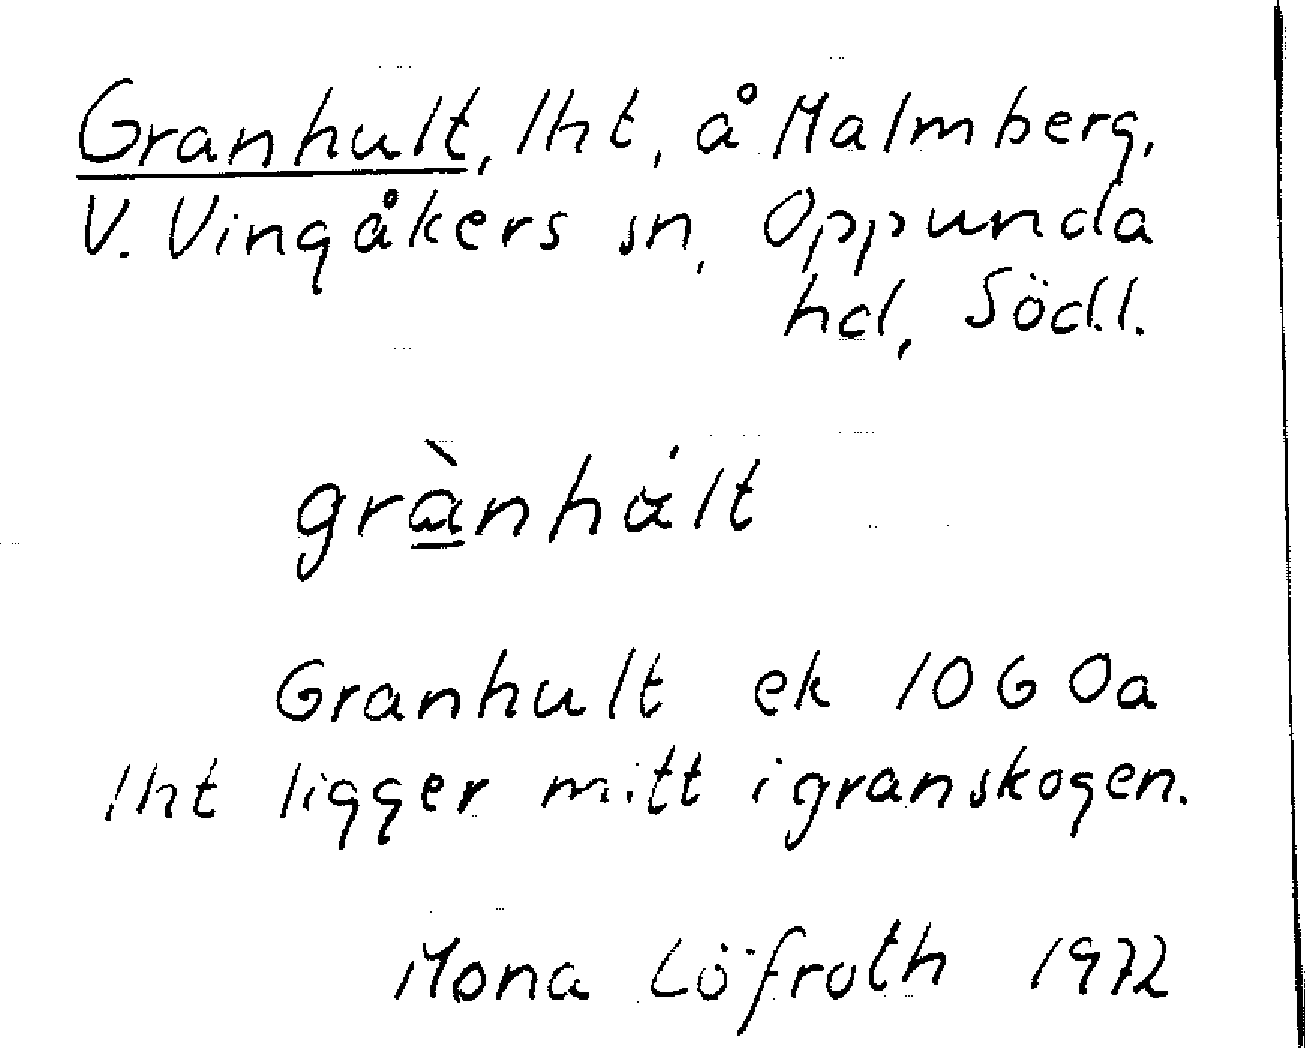 Granhult, lht, å Malmberg,
V. Vingåkers sn, Oppunda
hd, Södl.
grànhált
Granhult ek 10G 0a
lht ligger mitt i granskogen.
Mona Löfroth 1972